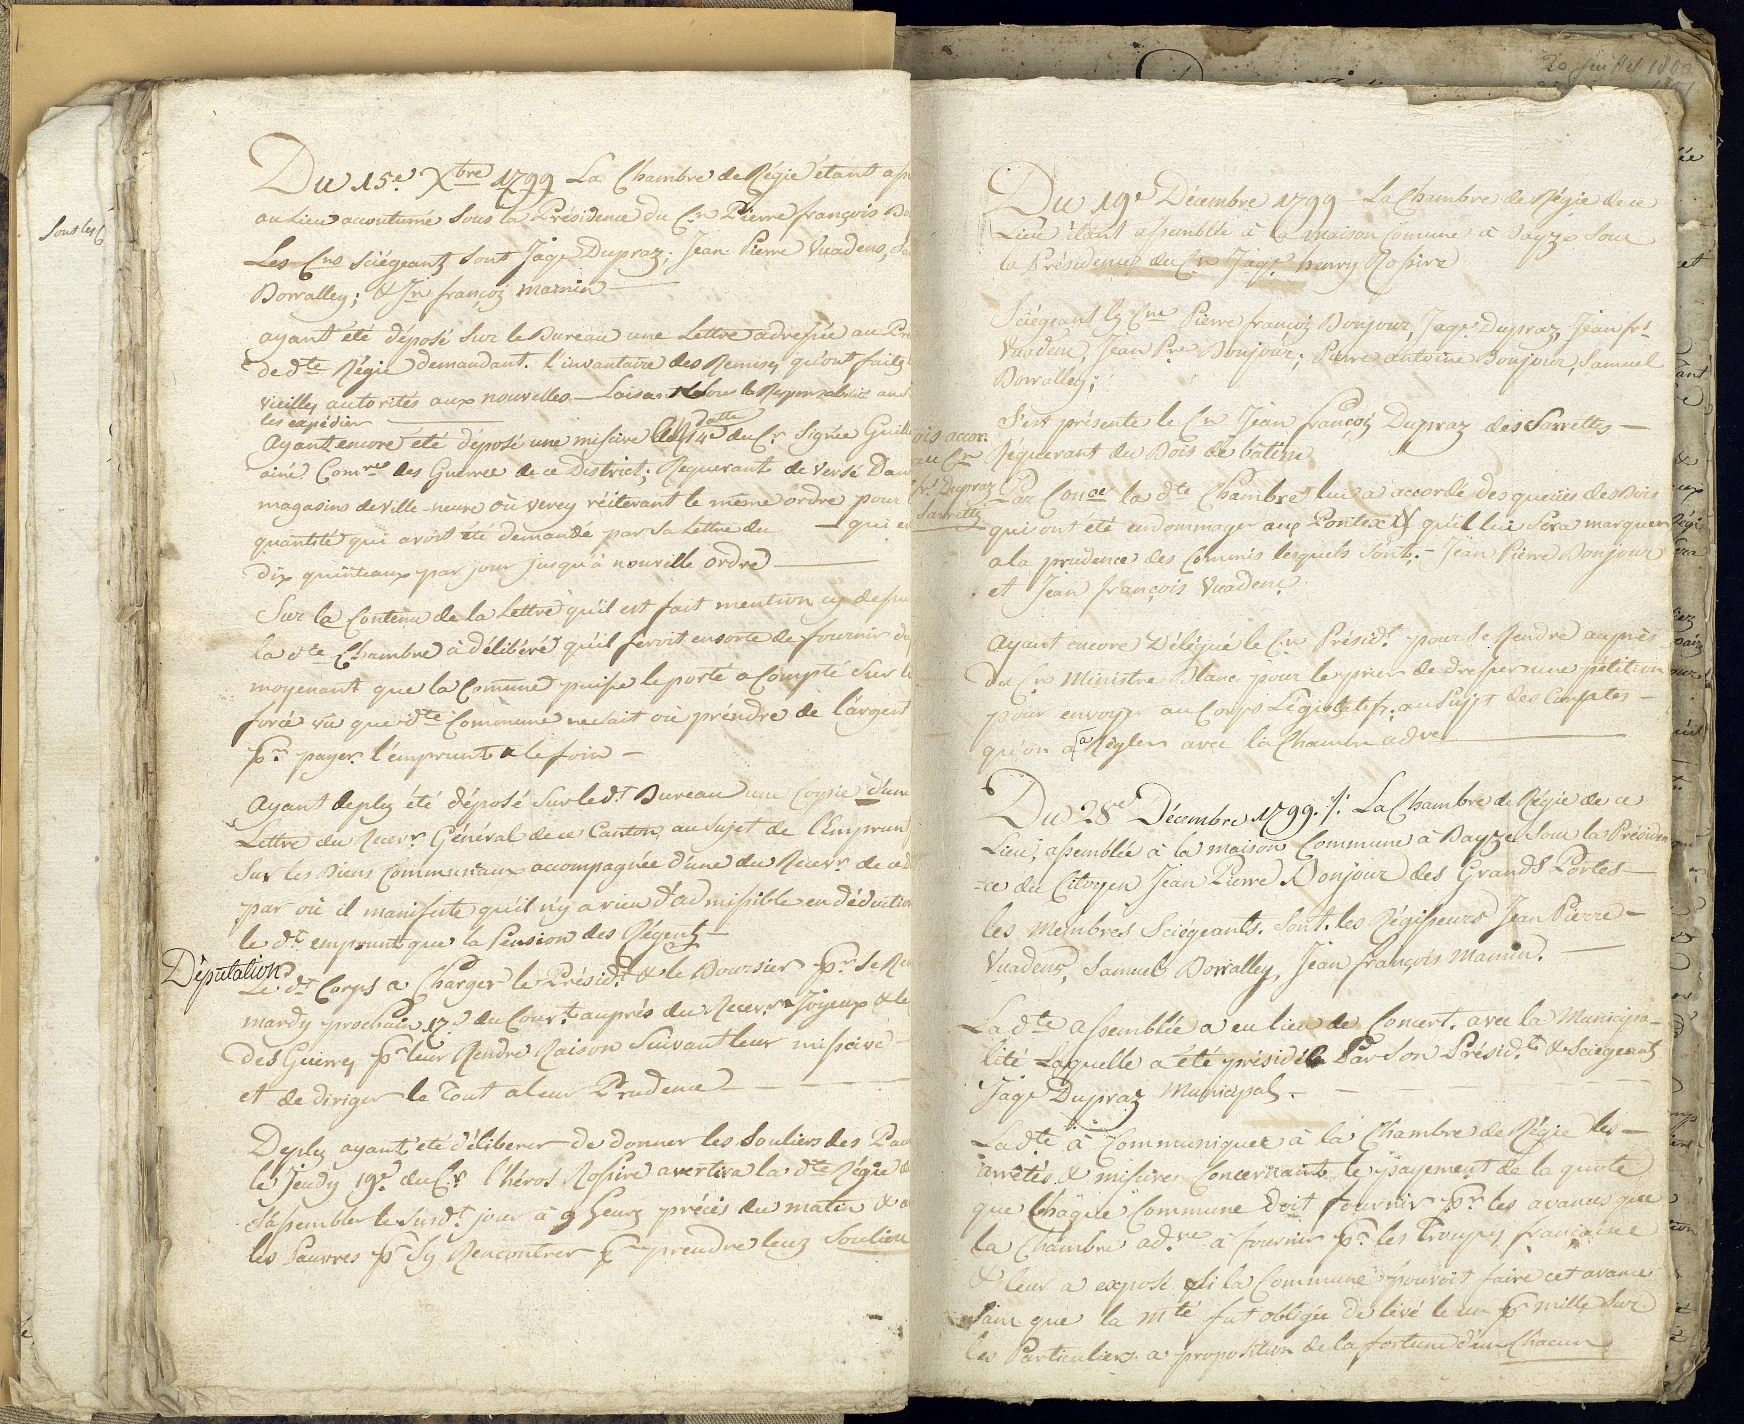 Sont les C
Du 15.e Xbre 1799 La Chambre de Régie étant ass
au Lieu accoutumé Sous la Présidence du C.n Pierre françois Bo
Les C.ns Sciégeantz sont Jaqe Dupraz; Jean Pierre Vuadens, Sa
Dorralley; & Jn françoiz mamin
ayant été déposé Sur le Bureau une Lettre adressée au Pré
de d.te Régie demandant. l'invantaire des Remises qu'ont faitz
vieilles autorités aux nouvelles — Sous le Responsabilité au
les expédier
Ayant encore été déposé une missive datte 14.e du C.r Signée Guill
ainé Com.re des Guerres de ce District; Requerante de versé Dan
magasins de Ville-neuve où vevey réiterant le même ordre pour
quantité qui avoit été demandé par Sa Lettre du — qui e
dix quinteaux par jour jusqu'à nouvelle ordre
Sur la Contenu de la Lettre qu'il est fait mention cy dessu
la d.te Chambre à délibéré qu'il feroit ensorte de fournir du
moyenant que la Comune puisse le porté a Compté Sur l
forcé vu que d.te Commune ne sait où prendre de l'argent
p.r payer l'emprunt & le foin —
Ayant deplus été déposé Sur le d.t Bureau une Copie d'une
Lettre du Recev.r Général de ce Canton, au Sujet de l'Emprun
Sur les Biens Communaux accompagnée d'une du Recev.r de ce
par où il manifeste qu'il n'y a rien d'admissible en déduction
le d.t emprunt que la Pension des Régentz
Députation
Le d.t Corps a Charger le Présid.t & le Boursier p.r Se Ren
mardy prochain 17.e du Cour.t auprès du Recev.r Joyeux & le
des Guerres p.r leur Rendre Raison Suivant leur missive
et de diriger le Tout a leur Prudence
Deplus ayant été déliberer de donner les Souliers des Pau
le Jeudy 19.e du C.r l'héros Rossire avertira la d.te Régie d
S'assembler le Susd.t jour à 9 heures précis du matin & a
les Pauvres p.r S'y Rencontrer p.r prendre leurs Souliers
20 Juillet 1800
Du 19.e Décembre 1799 La Chambre de Régie de ce
Lieu étant assemblée à la maison Comune à Bayze Sous
la Présidence du C.n Jaq.e henry Rossire
Sciégeant les C.ns Pierre françoiz Bonjour, Jaqe Dupraz, Jean fr.s
Vuadens, Jean P.re Bonjour; Pierre antoine Bonjour, Samuel
Dorralley;
S'est présenté le C.n Jean françoiz Dupraz des Sarrettes —
ois accor.
au C.n
fr.s Dupraz
Sarrettes
Réquerant du Bois de bâtisse
Par Con.ce la d.te Chambre lui a accordé des queues des Bois
qui ont été endommager aux Pontex & qu'il lui Sera marquer
a la prudence des Commis lesquels Sont: — Jean Pierre Bonjour
et Jean françois Vuadens.
Ayant encore Délégué le C.n Présid.t pour Se Rendre auprès
du C.n Ministre Blanc pour le prier de dresser une pétition
pour envoyer au Corps Législatif; au Sujet des Comptes —
qu'on a a Régler avec la Chambre adve
Du 28.e Décembre 1799 :/: La Chambre de Régie de ce
Lieu, assemblée à la maison Commune à Bayze Sous la Présiden
=ce du Citoyen Jean Pierre Bonjour des Grands Portes —
les Membres Sciégeants. Sont. les Régisseurs Jean Pierre —
Vuadens, Samuel Dorralley, Jean françois Mamin.
La d.te assemblée a eu lieu de Concert. avec la Municipa-
lité Laquelle a été présidée Par Son Présid.t & Sciégeantz
Jaqe Dupraz Municipal.
La d.te à Communiquer à la Chambre de Régie les —
arrêtés & missives Concernants le payement de la quote
que Chaque Commune doit fournir p.r les avances que
la Chambre ad.ve a fournir p.r les Troupes française
& leur a exposé Si la Commune pouvoit faire cet avance
Sans que la M.té fut obligée de levé le un p.r mille Sur
les Particuliers a proposition de la fortune d'un Chacun